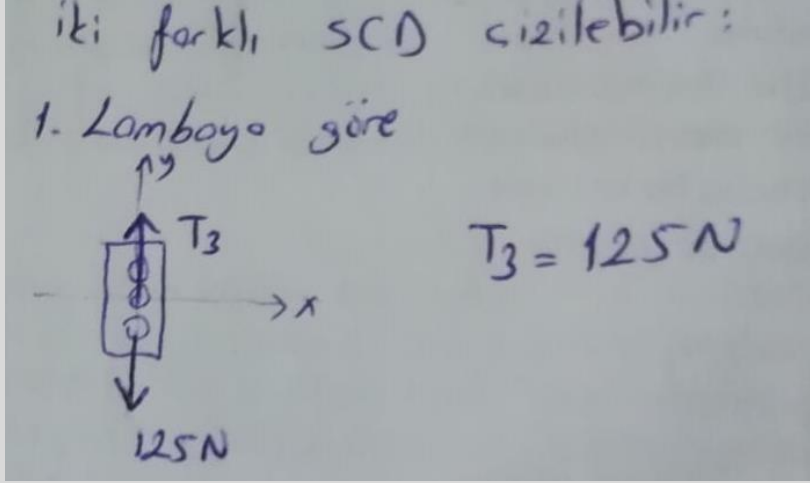 iki farklı SCD çizilebilir:
1. Lambaya göre
y
T3
T3 = 125N
x
125N